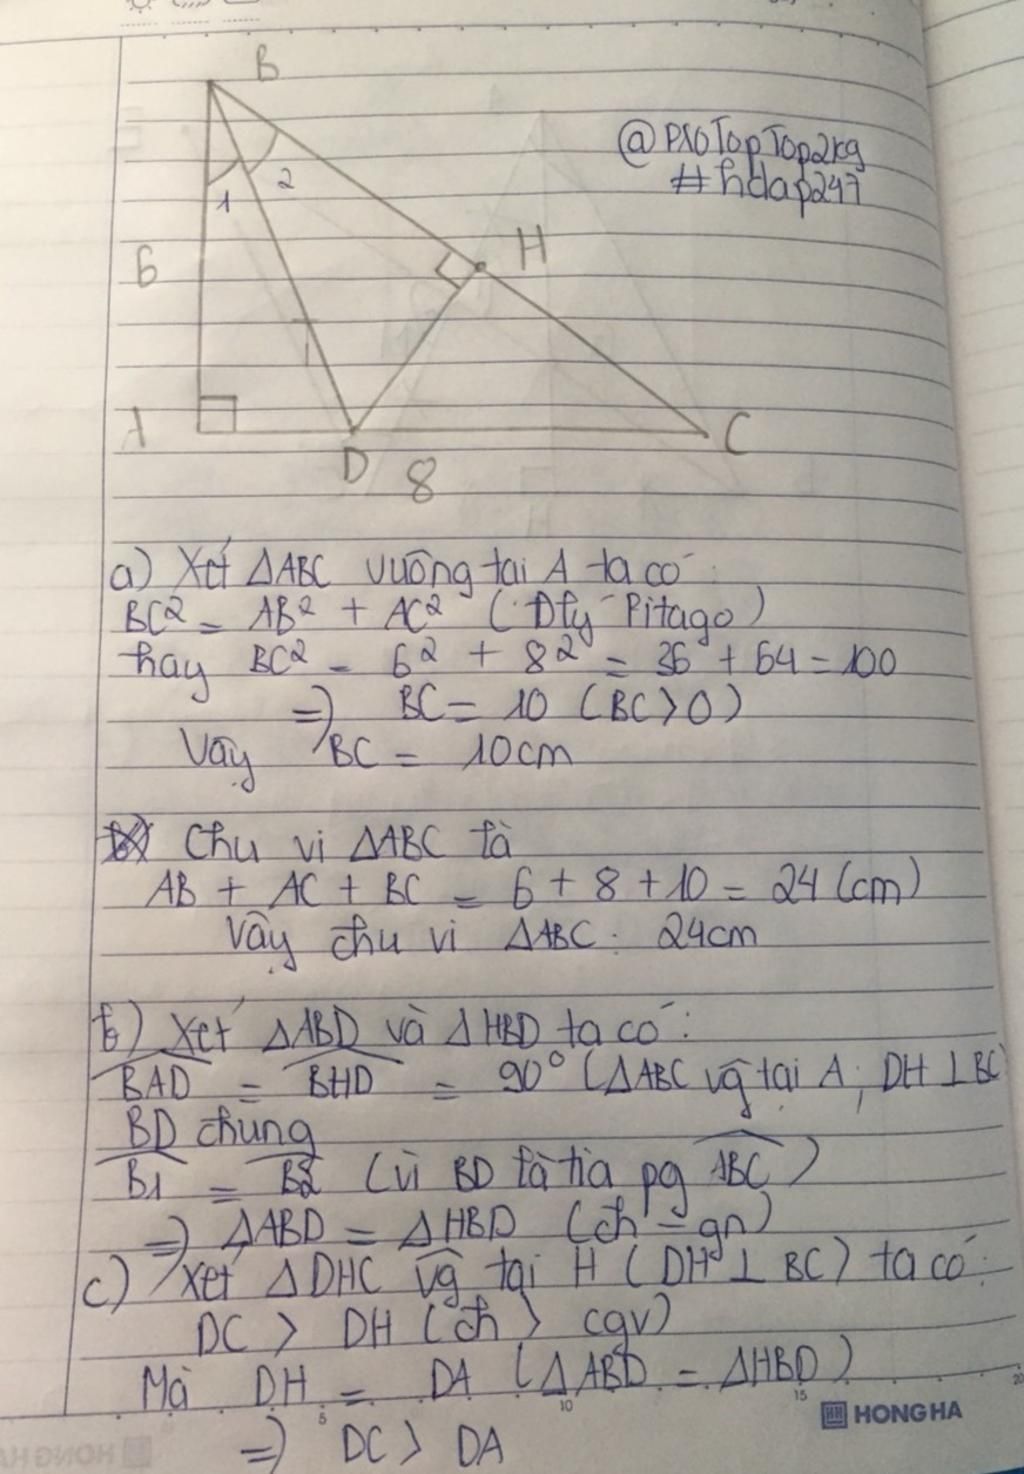 B
@P10TopTop2kg
#hdap247
1
2
H
6
A
D
8
C
a) Xét ΔABC vuông tại A ta có:
BC² = AB² + AC² (Đly Pitago)
hay BC² = 6² + 8² = 36 + 64 = 100
=) BC = 10 (BC > 0)
Vậy BC = 10cm
Chu vi ΔABC là
AB + AC + BC = 6 + 8 + 10 = 24 (cm)
Vậy chu vi ΔABC: 24cm
b) Xét ΔABD và ΔHBD ta có:
BAD = BHD = 90° (ΔABC vg tại A; DH ⊥ BC)
BD chung
B1 = B2 (vì BD là tia pg ABC)
=) ΔABD = ΔHBD (ch - gn)
c) Xét ΔDHC vg tại H (DH ⊥ BC) ta có:
DC > DH (ch > cgv)
Mà DH = DA (ΔABD = ΔHBD)
=) DC > DA
5 10 15 20
HONG HA